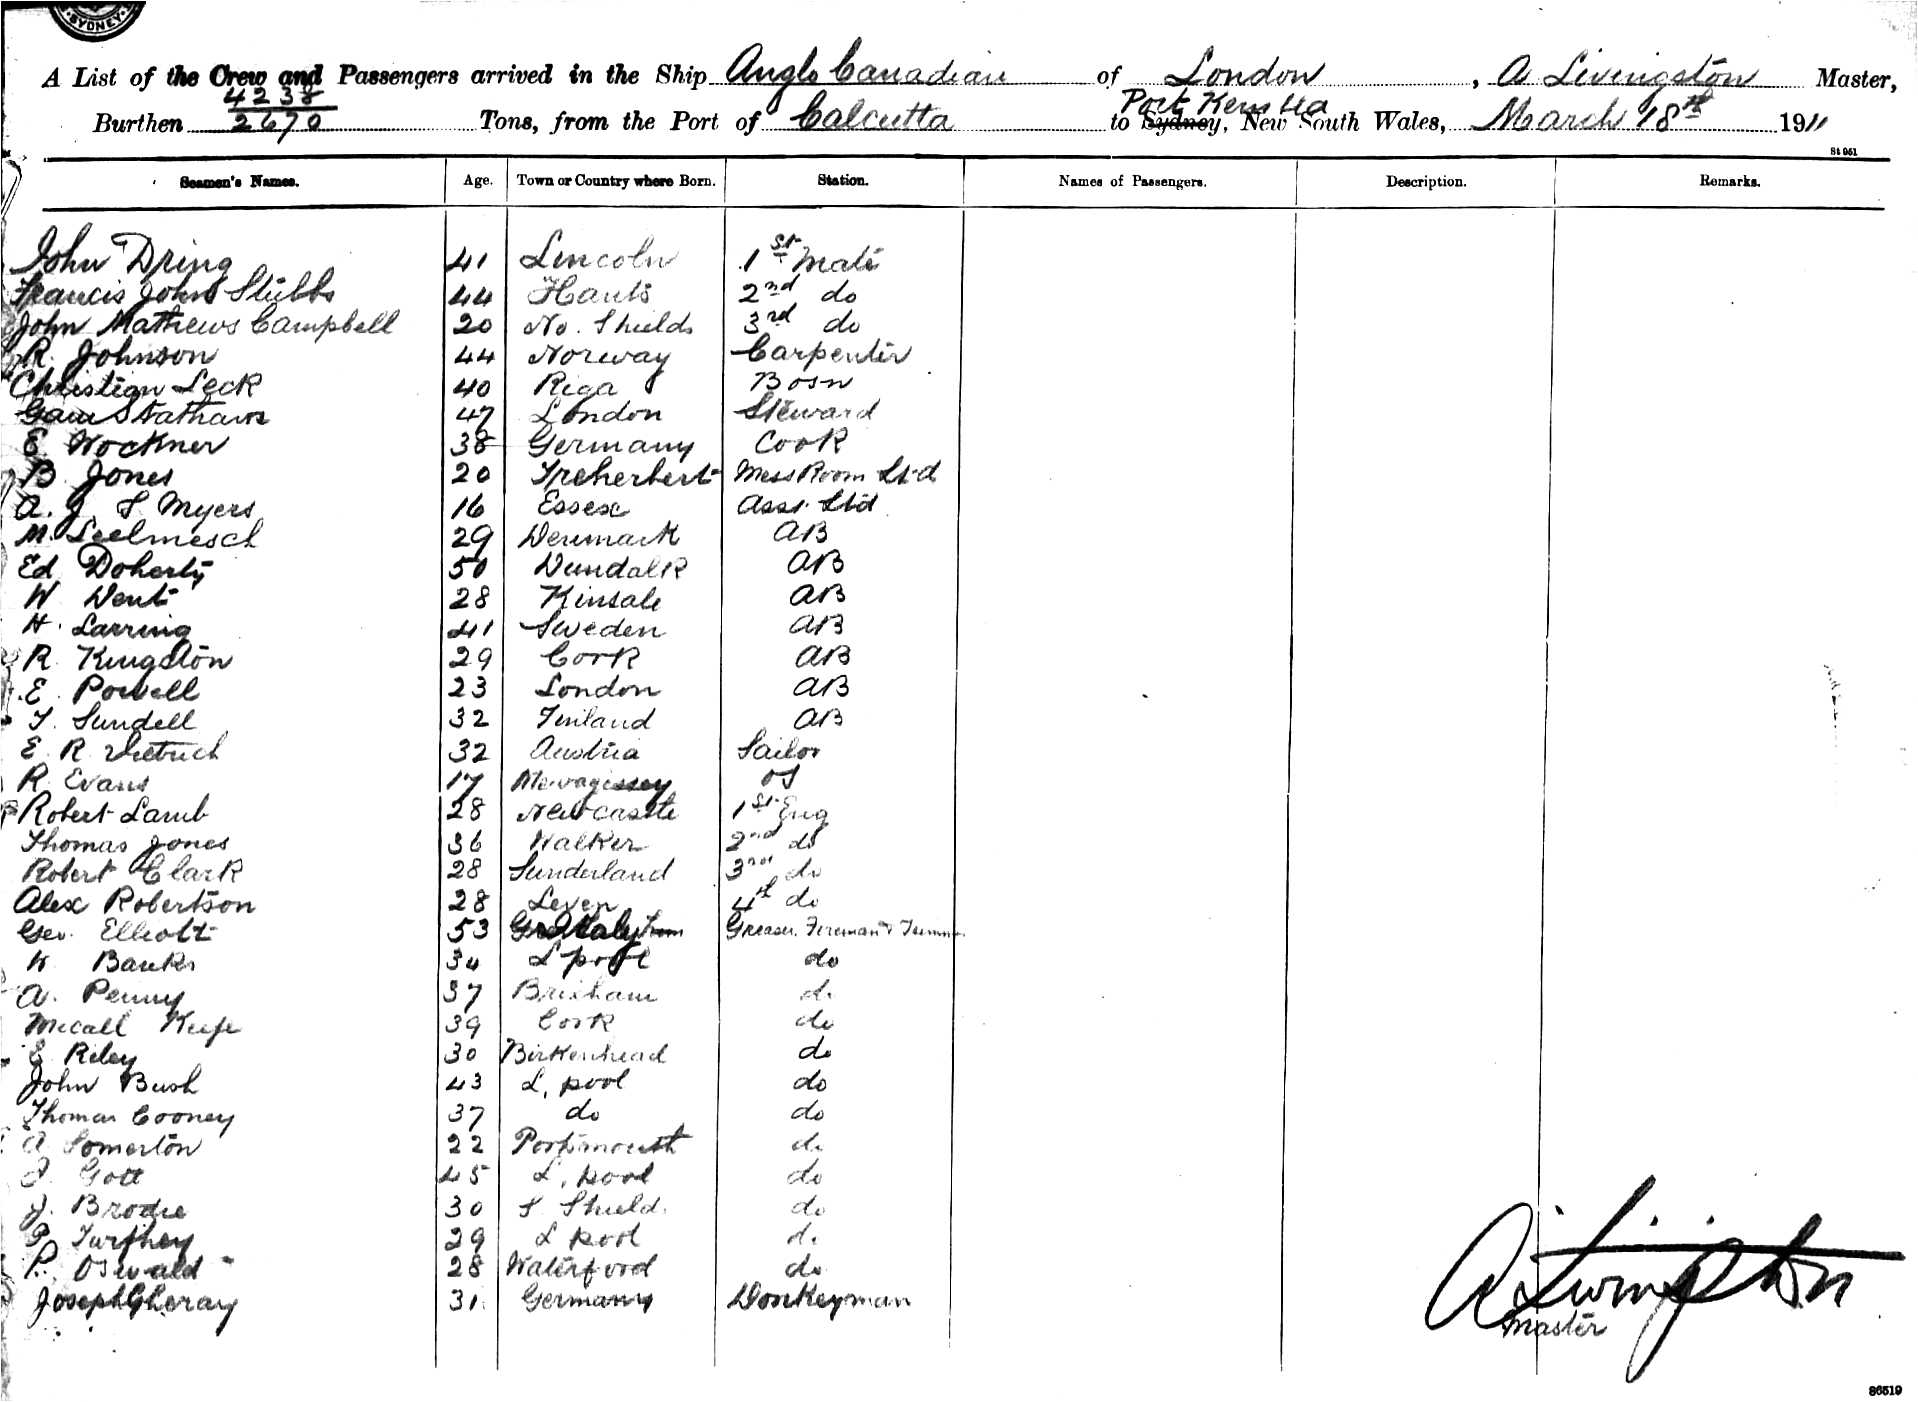 SYDNEY
A List of the Crew and Passengers arrived in the Ship Anglo Canadian of London, A Livingston Master,
4238
Burthen 2670 Tons, from the Port of Calcutta to Sydney, Port Kembla New South Wales, March 18th 1911
84 951
Seamen's Names. Age. Town or Country where Born. Station. Names of Passengers. Description. Remarks.
John Dring 41 Lincoln 1st Mate
Francis John Stubbs 44 Hants 2nd do
John Mathews Campbell 20 No. Shields 3rd do
R. Johnson 44 Norway Carpenter
Christian Leck 40 Riga Bosn
Statham 47 London Steward
E Wockner 38 Germany Cook
B Jones 20 Treherbert Mess Room Std
A. J. S. Myers 16 Essex Asst. Std
M. 29 Denmark AB
Ed Doherty 50 Dundalk AB
W Dent 28 Kinsale AB
H. Larring 41 Sweden AB
R. Kingston 29 Cork AB
E. Powell 23 London AB
T. Sundell 32 Finland AB
E. R. Dietrich 32 Austria Sailor
R Evans 17 Mevagissey OS
Robert Lamb 28 Newcastle 1st Eng
Thomas Jones 36 Walker 2nd do
Robert Clark 28 Sunderland 3rd do
Alex Robertson 28 Leven 4th do
Geo. Elliott 53 Greaser. Fireman &
W Banks 34 L'pool do
A. Penny 37 Brixham do
Mccall Keefe 39 Cork do
E Riley 30 Birkenhead do
John Bush 43 L, pool do
Thomas Cooney 37 do do
A Somerton 22 Portsmouth do
Gott 45 L, pool do
J. Brodie 30 S Shields do
P. 29 L pool do
P. Oswald 28 Waterford do
Joseph Gheray 31 Germany Donkeyman
A Livingston
Master
86519